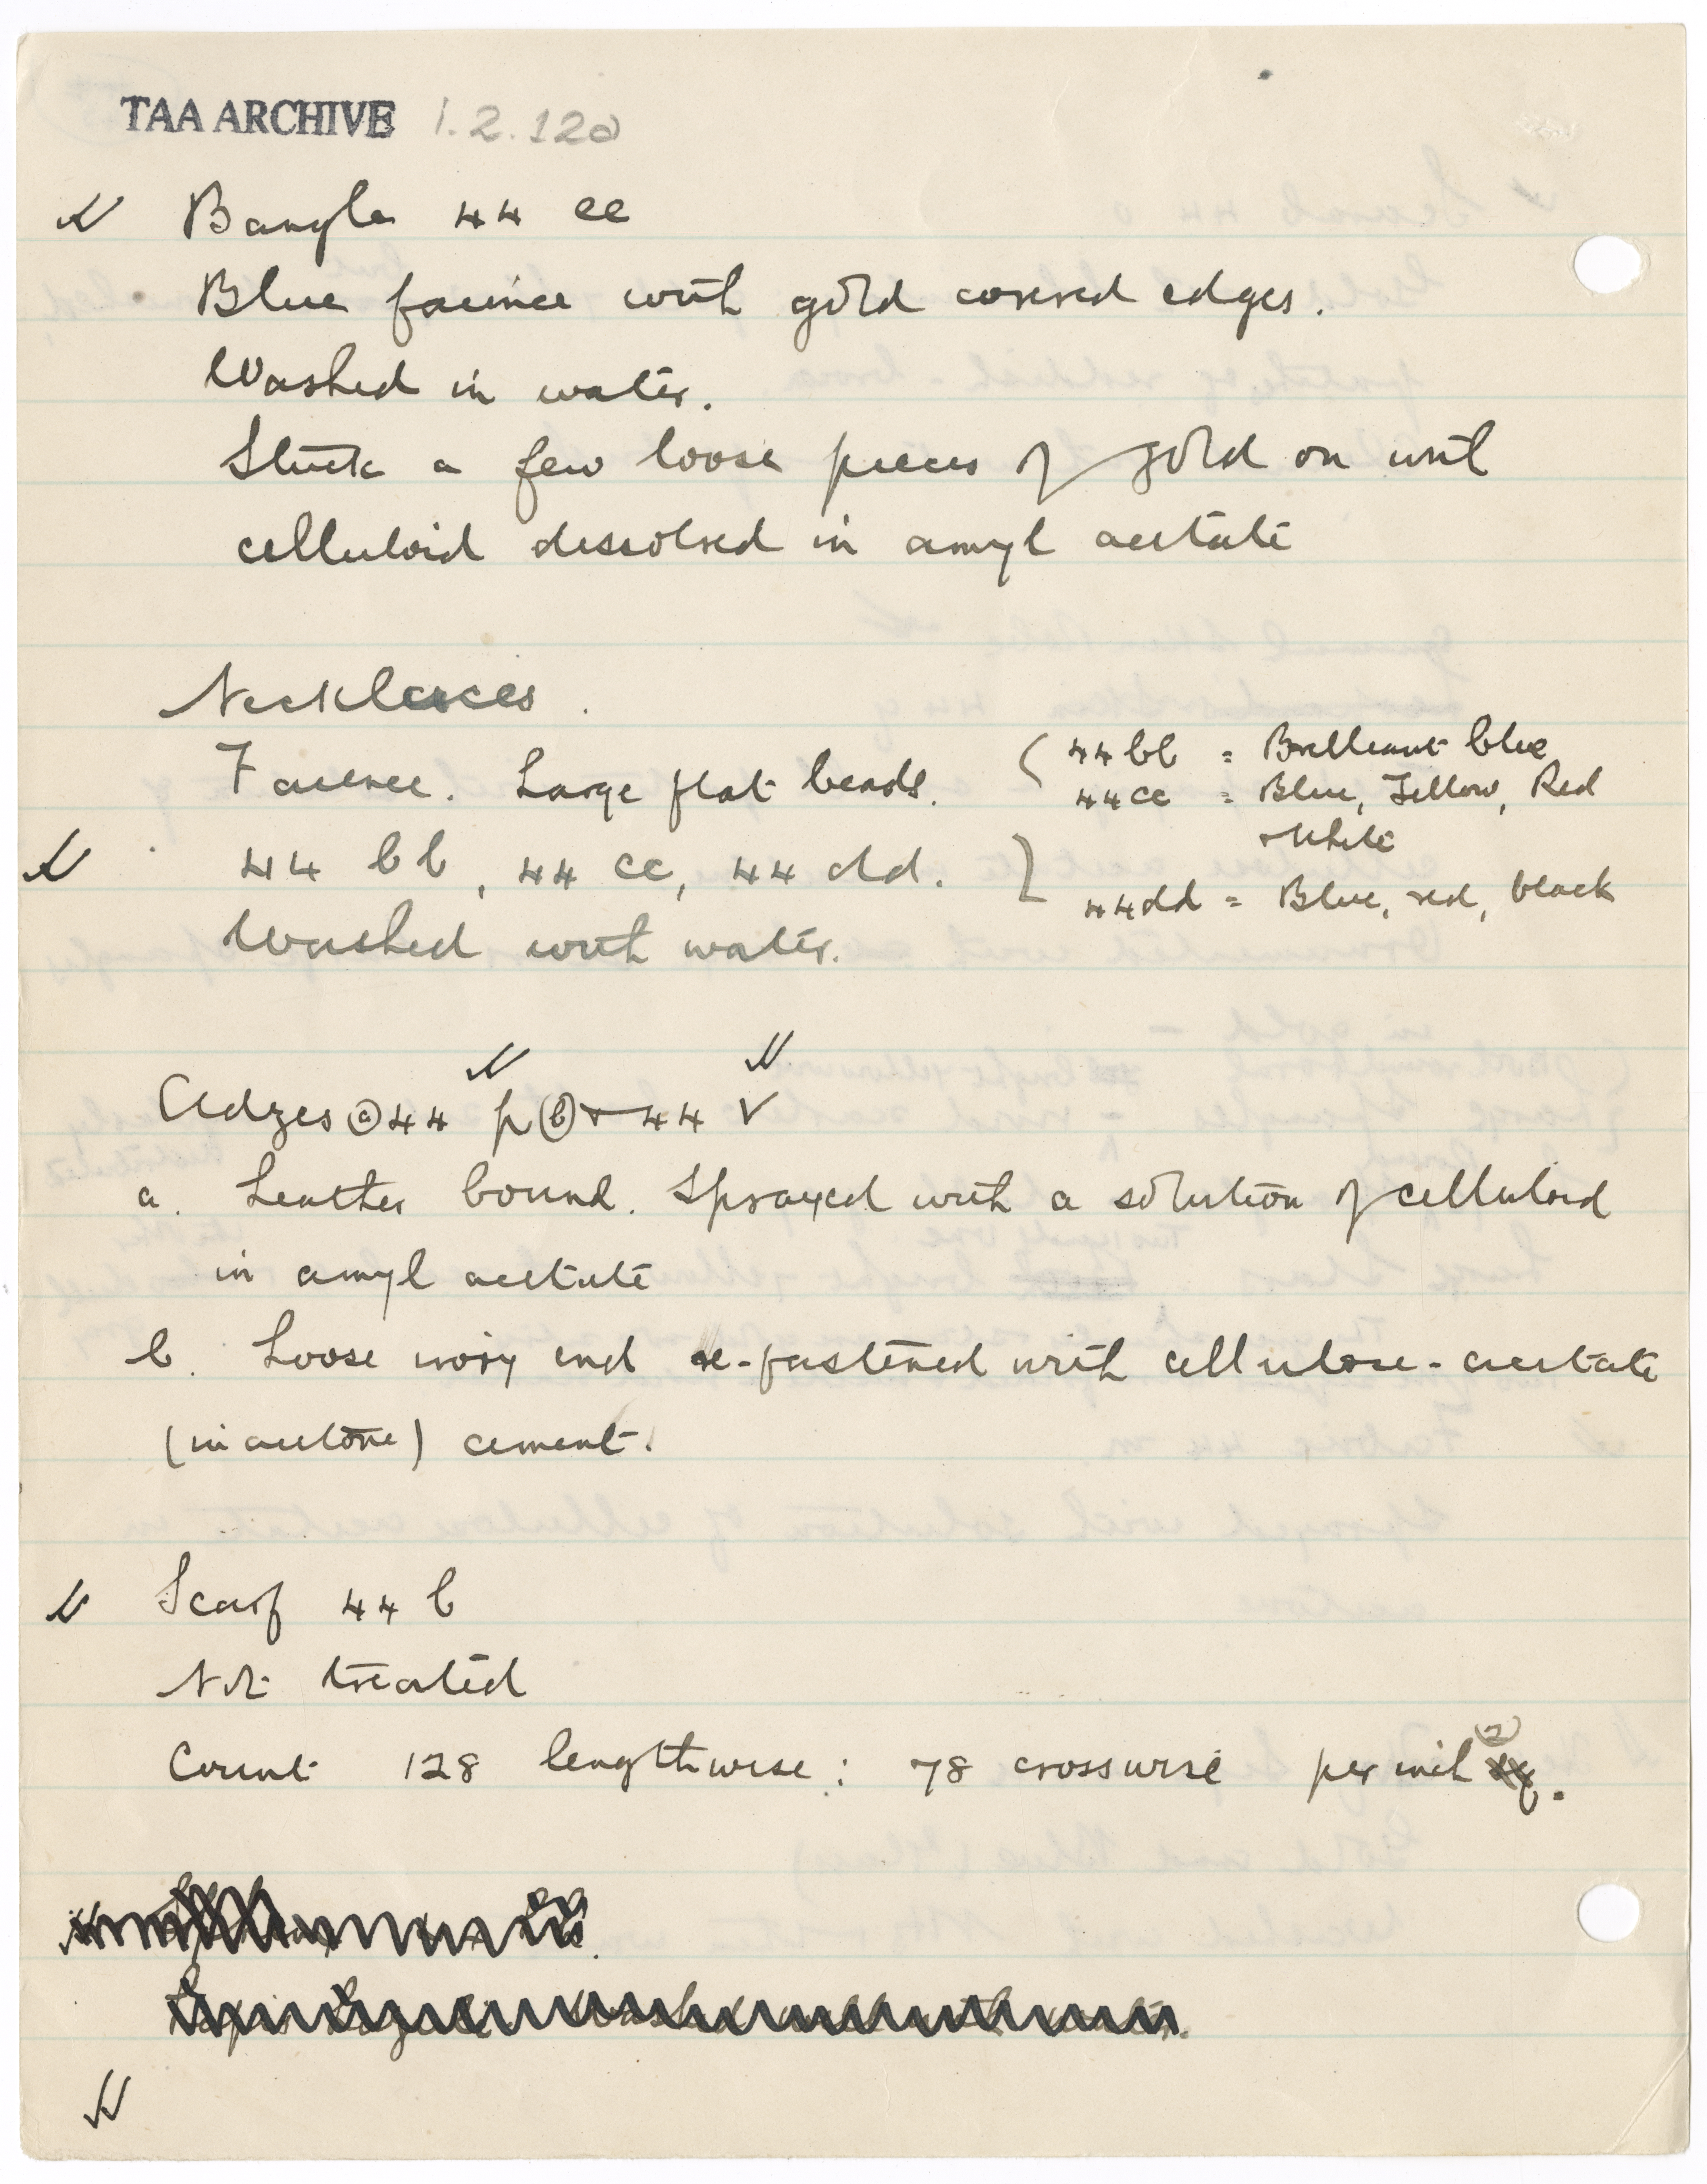 TAA ARCHIVE 1.2.120
Bangle 44 ee
Blue faience with gold covered edges.
Washed in water.
Stuck a few loose pieces of gold on with
celluloid dissolved in amyl acetate
Necklaces.
Faience. Large flat beads.
44 bb, 44 cc, 44 dd.
Washed with water.
44 bb = Brilliant blue
44 cc = Blue, Yellow, Red
+ White
44 dd = Blue, red, black
Adzes (a) 44 p (b) + 44 v
a. Leather bound. Sprayed with a solution of celluloid
in amyl acetate
b. Loose ivory end re-fastened with cellulose-acetate
(in acetone) cement.
Scarf 44 b
Not treated
Count 128 lengthwise: 78 crosswise per inch (2).